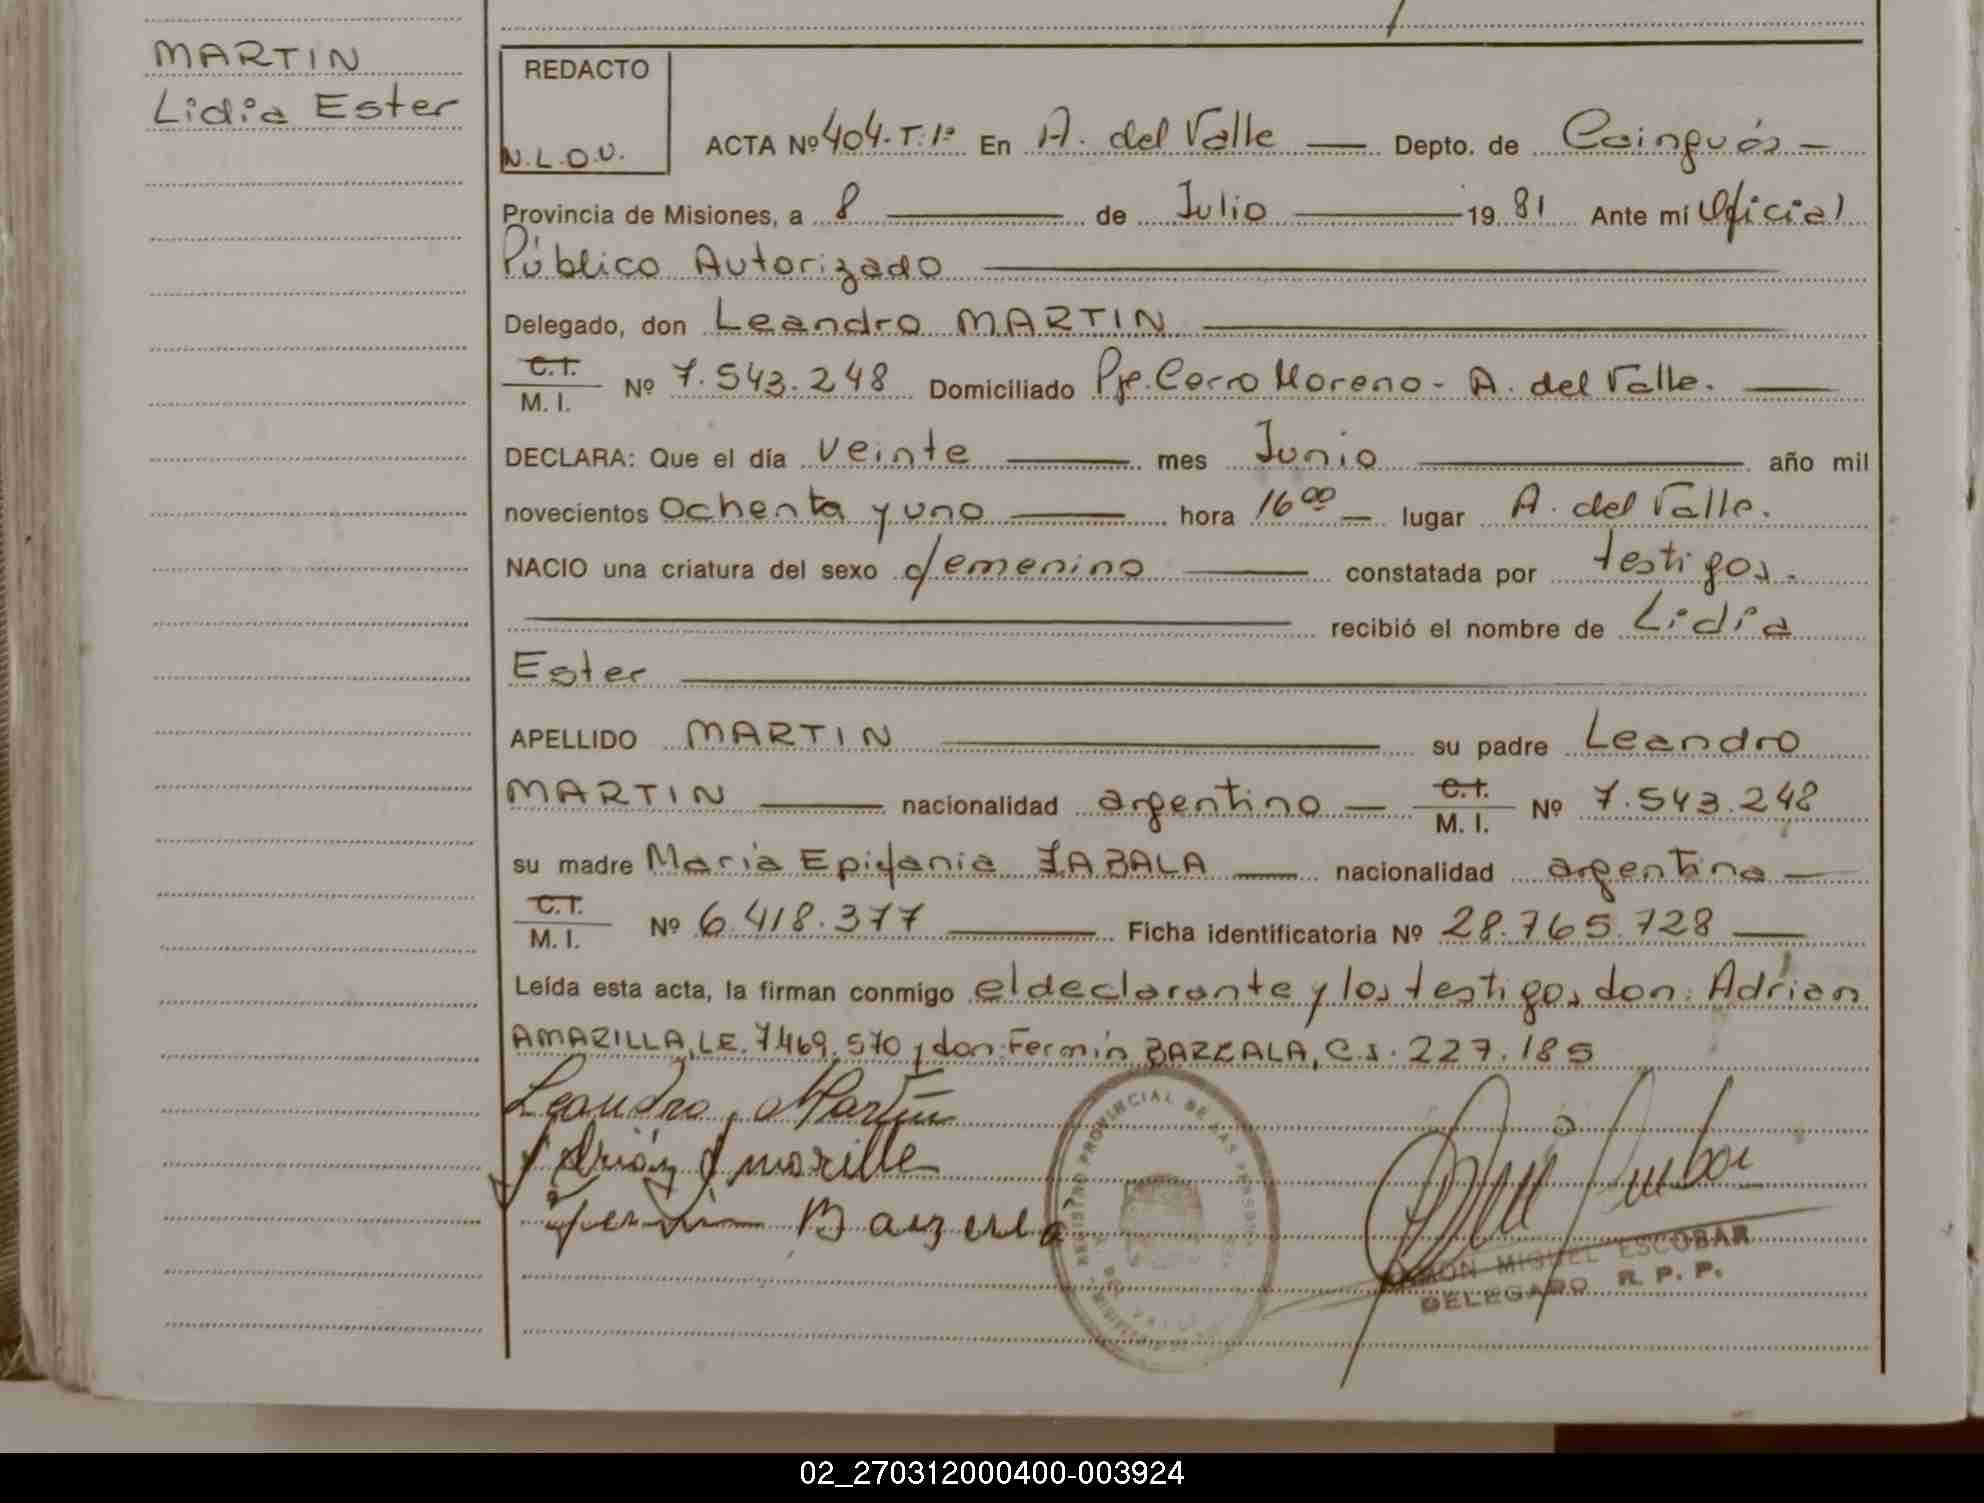 MARTIN
Lidia Ester
REDACTO
N.L.O.V.
ACTA Nº 404-T.1º En A. del Valle Depto. de Cainguás
Provincia de Misiones, a 8 de Julio 19 81 Ante mí Oficial
Público Autorizado
Delegado, don Leandro MARTIN
C.I.
M. I. Nº 7.543.248 Domiciliado Pje. Cerro Moreno - A. del Valle.
DECLARA: Que el día veinte mes Junio año mil
novecientos ochenta y uno hora 16 00 lugar A. del Valle.
NACIO una criatura del sexo femenino constatada por testigos.
recibió el nombre de Lidia
Ester
APELLIDO MARTIN su padre Leandro
MARTIN nacionalidad argentino C.I.
M. I. Nº 7.543.248
su madre María Epifania ZABALA nacionalidad argentina
C.I.
M. I. Nº 6.418.377 Ficha identificatoria Nº 28.765.728
Leída esta acta, la firman conmigo el declarante y los testigos don: Adrian
AMARILLA, L.E. 7.469.570 y don Fermín BAZZALA, C.I. 227.185
Leandro Martin
Adrián Amarilla
Fermin
REGISTRO PROVINCIAL DE LAS PERSONAS
RAMON MIGUEL ESCOBAR
DELEGADO R. P. P.
02_270312000400-003924